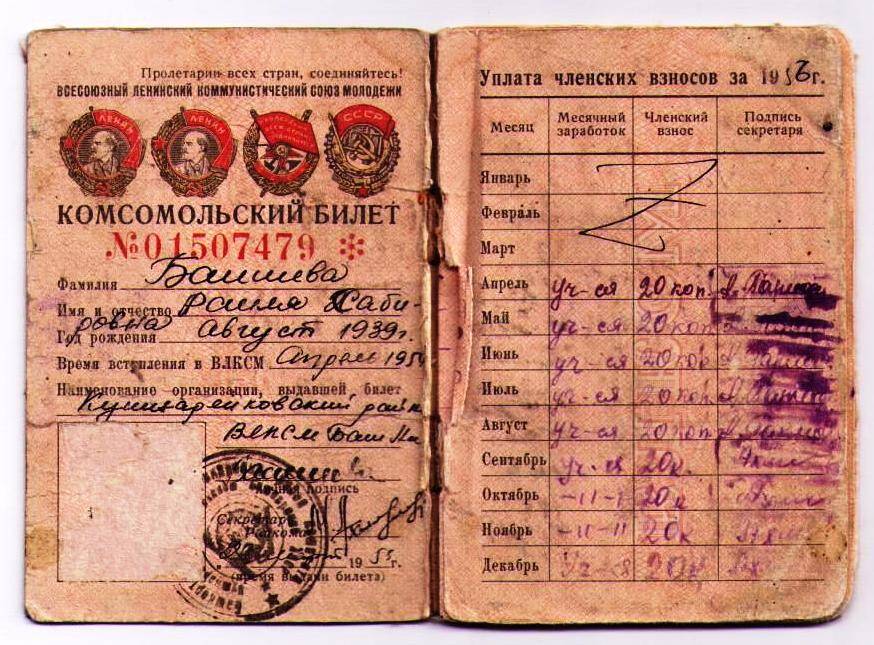 Пролетарии всех стран, соединяйтесь!
ВСЕСОЮЗНЫЙ ЛЕНИНСКИЙ КОММУНИСТИЧЕСКИЙ СОЮЗ МОЛОДЕЖИ
ЛЕНИН ЛЕНИН СССР
КОМСОМОЛЬСКИЙ БИЛЕТ
№01507479
Фамилия Башева
Имя и отчество Раиля Хаби-
ровна
Год рождения Август 1939г.
Время вступления в ВЛКСМ Апрель
Наименование организации, выдавшей билет
Кушнаренковский райком
ВЛКСМ
Личная подпись
Секретарь
Райкома
1953г.
(время выдачи билета)
Уплата членских взносов за 1953г.
Месяц Месячный заработок Членский взнос Подпись секретаря
Январь
Февраль
Март
Апрель уч-ся 20 коп.
Май уч-ся 20 коп
Июнь уч-ся 20 коп
Июль уч-ся 20 коп
Август уч-ся 20 коп
Сентябрь уч-ся 20к.
Октябрь -11- 20к
Ноябрь -11-11 20к
Декабрь уч-ся 20к